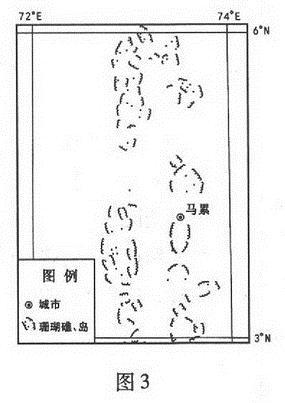 72°E 74°E
6°N
马累
图 例
城市
珊瑚礁、岛
3°N
图 3